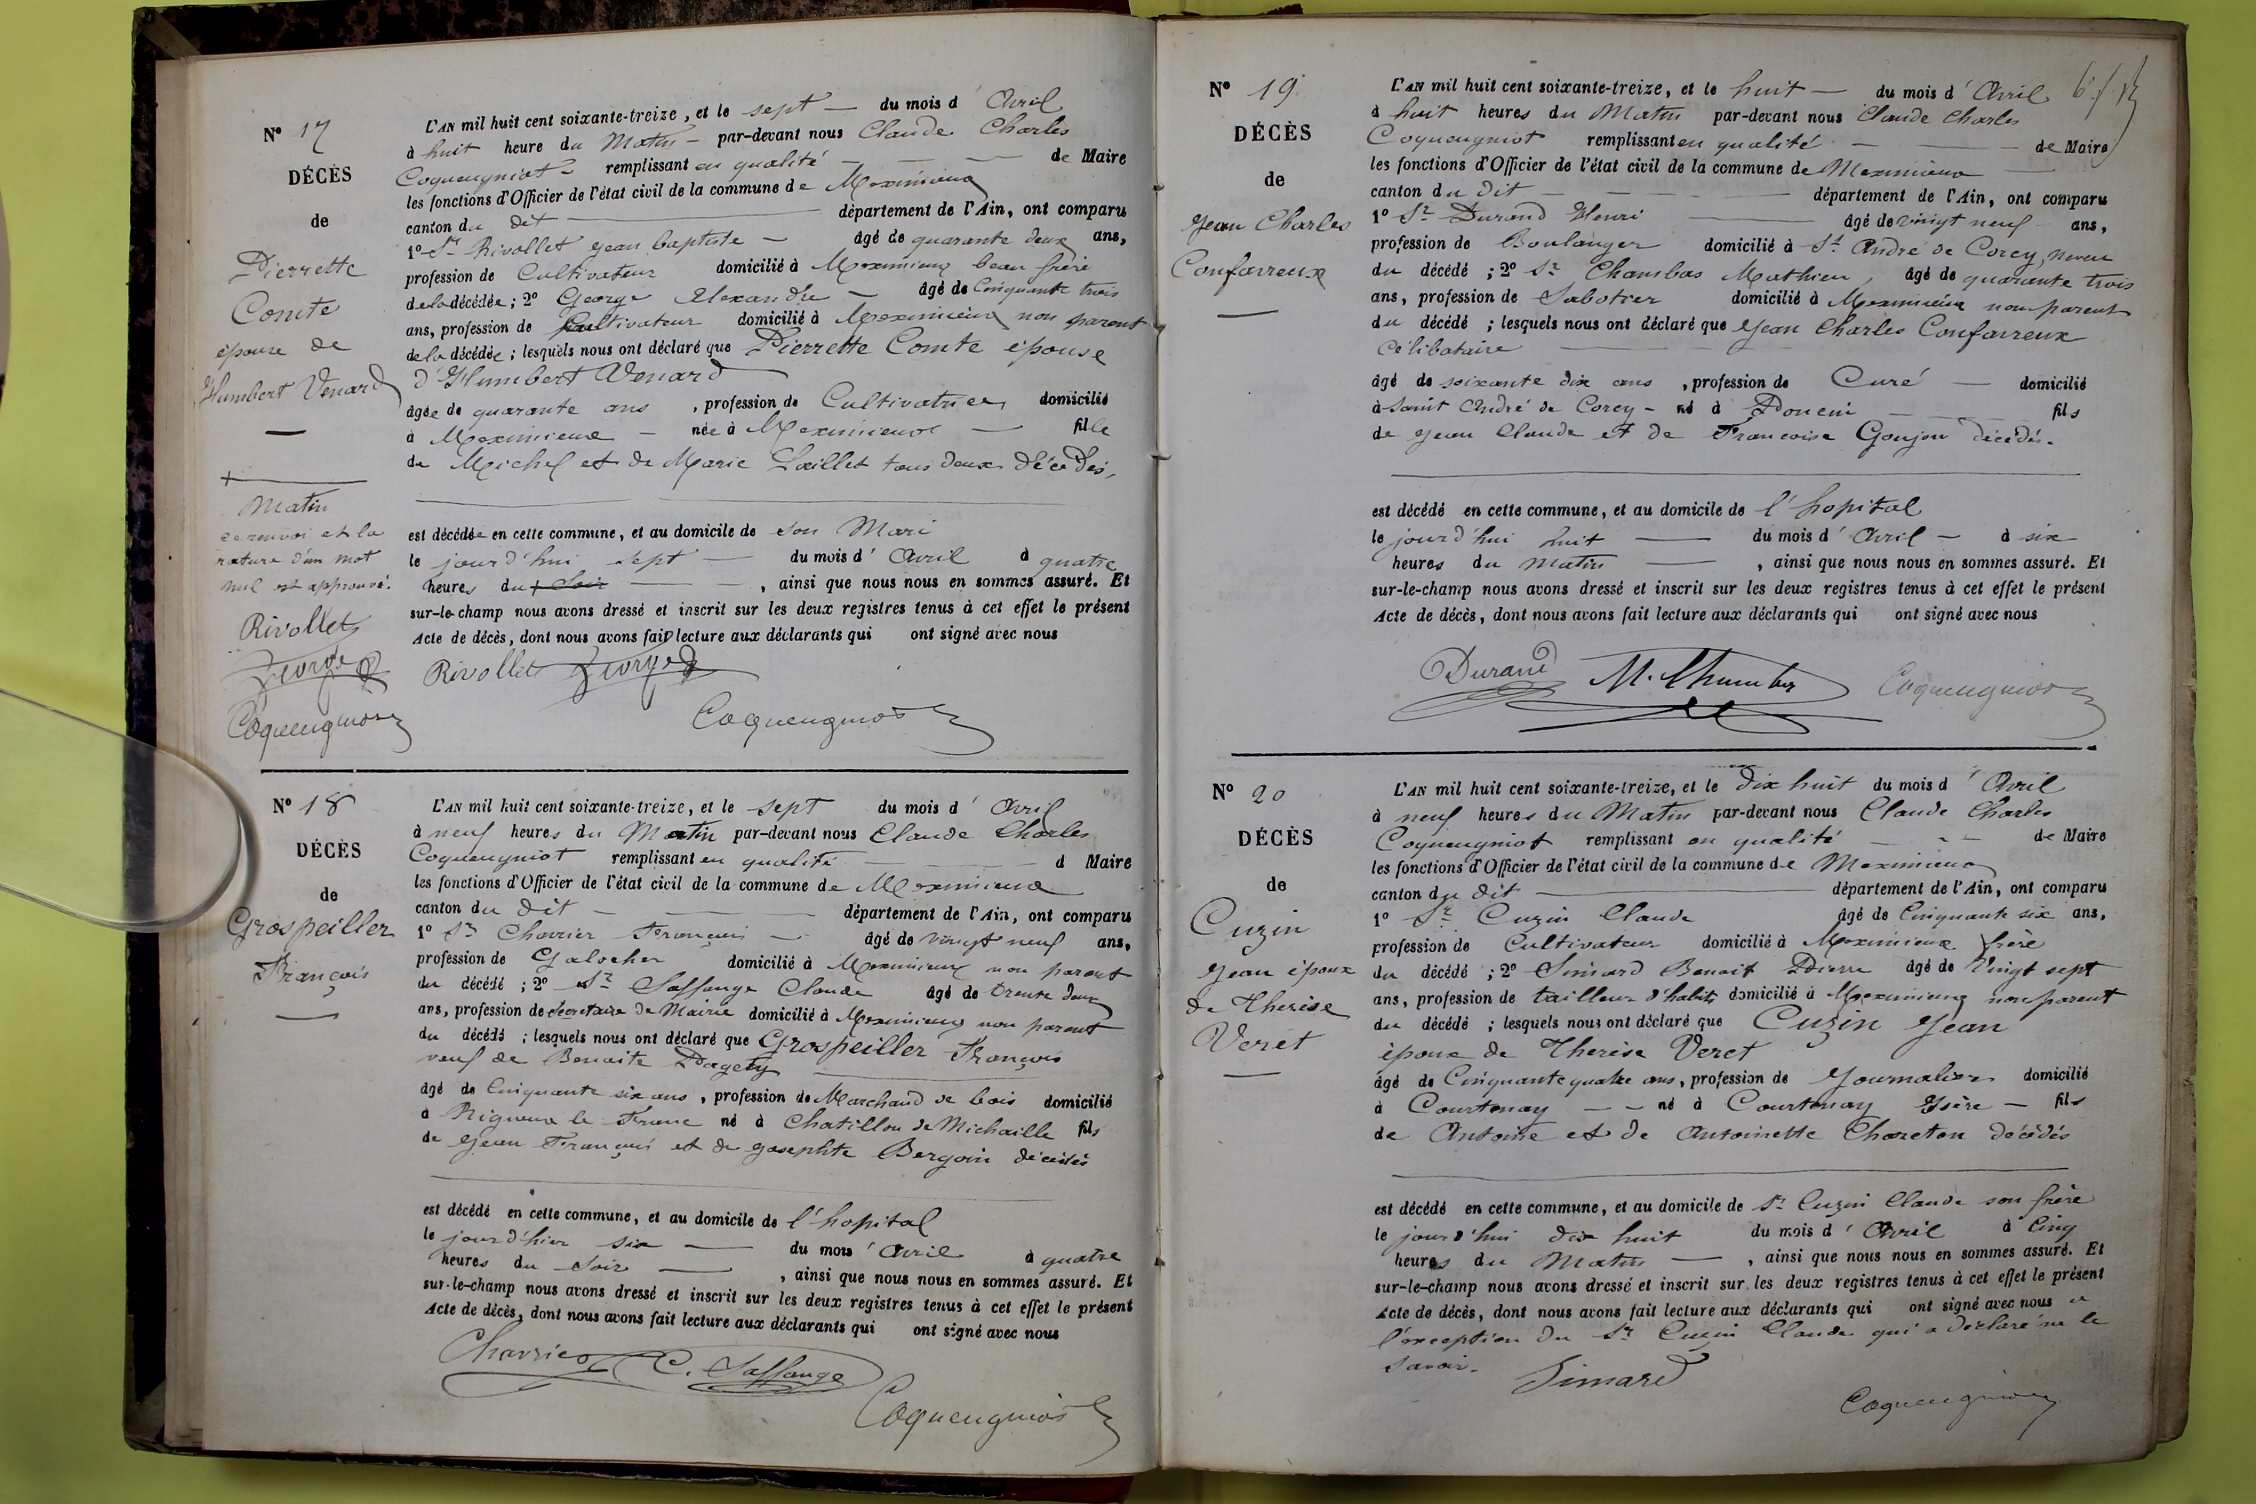 Nº 17
DÉCÈS
de
Pierrette
Comte
épouse de
Humbert Venard
L'AN mil huit cent soixante-treize, et le sept du mois d'Avril
à huit heure du Matin par-devant nous Claude Charles
Coqueugniot remplissant en qualité de Maire
les fonctions d'Officier de l'état civil de la commune de Meximieux
canton du dit département de l'Ain, ont comparu
1º Sr Rivollet Jean Baptiste âgé de quarante deux ans,
profession de Cultivateur domicilié à Meximieux beau frère
de la décédée; 2º George Alexandre âgé de Cinquante trois
ans, profession de Cultivateur domicilié à Meximieux non parent
de la décédée; lesquels nous ont déclaré que Pierrette Comte épouse
d'Humbert Venard
âgée de quarante ans, profession de Cultivatrice domicilié
à Meximieux née à Meximieux fille
de Michel et de Marie Laillet tous deux décédés,
est décédée en cette commune, et au domicile de son Mari
le jourd'hui sept du mois d'Avril à quatre
heures du + Soir, ainsi que nous nous en sommes assuré. Et
sur-le-champ nous avons dressé et inscrit sur les deux registres tenus à cet effet le présent
Acte de décès, dont nous avons fait lecture aux déclarants qui ont signé avec nous
Rivollet George
Coqueugniot
+
Matin
ce renvoi et la
rature d'un mot
nul est approuvé.
Rivollet
George
Coqueugniot
Nº 18
DÉCÈS
de
Grospeiller
François
L'AN mil huit cent soixante-treize, et le sept du mois d'Avril
à neuf heures du Matin par-devant nous Claude Charles
Coqueugniot remplissant en qualité d Maire
les fonctions d'Officier de l'état civil de la commune de Meximieux
canton du dit département de l'Ain, ont comparu
1º Sr Charrier François âgé de vingt neuf ans,
profession de Galocher domicilié à Meximieux non parent
du décédé; 2º Sr Saffange Claude âgé de trente deux
ans, profession de Secretaire de Mairie domicilié à Meximieux non parent
du décédé; lesquels nous ont déclaré que Grospeiller François
veuf de Benoite
âgé de Cinquante six ans, profession de Marchand de bois domicilié
à Rigneux le Franc né à Chatillon de Michaille fils
de Jean François et de Josephte Bergoin décédés
est décédé en cette commune, et au domicile de l'hopital
le jourd'hier six du mois d'Avril à quatre
heures du Soir, ainsi que nous nous en sommes assuré. Et
sur-le-champ nous avons dressé et inscrit sur les deux registres tenus à cet effet le présent
Acte de décès, dont nous avons fait lecture aux déclarants qui ont signé avec nous
Charrier C. Saffange
Coqueugniot
Nº 19
DÉCÈS
de
Jean Charles
Confavreux
L'AN mil huit cent soixante-treize, et le huit du mois d'Avril
à huit heures du Matin par-devant nous Claude Charles
Coqueugniot remplissant en qualité de Maire
les fonctions d'Officier de l'état civil de la commune de Meximieux
canton du dit département de l'Ain, ont comparu
1º Sr Durand Henri âgé de vingt neuf ans,
profession de Boulanger domicilié à St André de Corcy, neveu
du décédé; 2º Sr Chambas Mathieu, âgé de quarante trois
ans, profession de Sabotier domicilié à Meximieux non parent
du décédé; lesquels nous ont déclaré que Jean Charles Confavreux
Célibataire
âgé de soixante dix ans, profession de Curé domicilié
à Saint André de Corcy né à Doucin fils
de Jean Claude et de Francoise Goujon décédés.
est décédé en cette commune, et au domicile de l'hopital
le jourd'hui huit du mois d'Avril à six
heures du Matin, ainsi que nous nous en sommes assuré. Et
sur-le-champ nous avons dressé et inscrit sur les deux registres tenus à cet effet le présent
Acte de décès, dont nous avons fait lecture aux déclarants qui ont signé avec nous
Durand M. Coqueugniot
Nº 20
DÉCÈS
de
Cuzin
Jean époux
de Therèse
Veret
L'AN mil huit cent soixante-treize, et le dix huit du mois d'Avril
à neuf heures du Matin par-devant nous Claude Charles
Coqueugniot remplissant en qualité de Maire
les fonctions d'Officier de l'état civil de la commune de Meximieux
canton du dit département de l'Ain, ont comparu
1º Sr Cuzin Claude âgé de Cinquante six ans,
profession de Cultivateur domicilié à Meximieux frère
du décédé; 2º Simard Benoit Pierre âgé de Vingt sept
ans, profession de tailleur d'habits domicilié à Meximieux non parent
du décédé; lesquels nous ont déclaré que Cuzin Jean
époux de Therèse Veret
âgé de Cinquante quatre ans, profession de Journalier domicilié
à Courtenay né à Courtenay Isère fils
de Antoine et de Antoinette Chareton décédés
est décédé en cette commune, et au domicile de Sr Cuzin Claude son frère
le jourd'hui dix huit du mois d'Avril à Cinq
heures du Matin, ainsi que nous nous en sommes assuré. Et
sur-le-champ nous avons dressé et inscrit sur les deux registres tenus à cet effet le présent
Acte de décès, dont nous avons fait lecture aux déclarants qui ont signé avec nous a
l'exception du Sr Cuzin Claude qui a déclaré ne le
savoir.
Simard
Coqueugniot